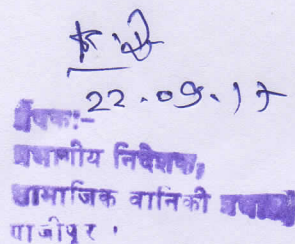 22.09.17
प्रेषक:-
प्रभागीय निदेशक,
सामाजिक वानिकी प्रभाग
गाजीपुर ।